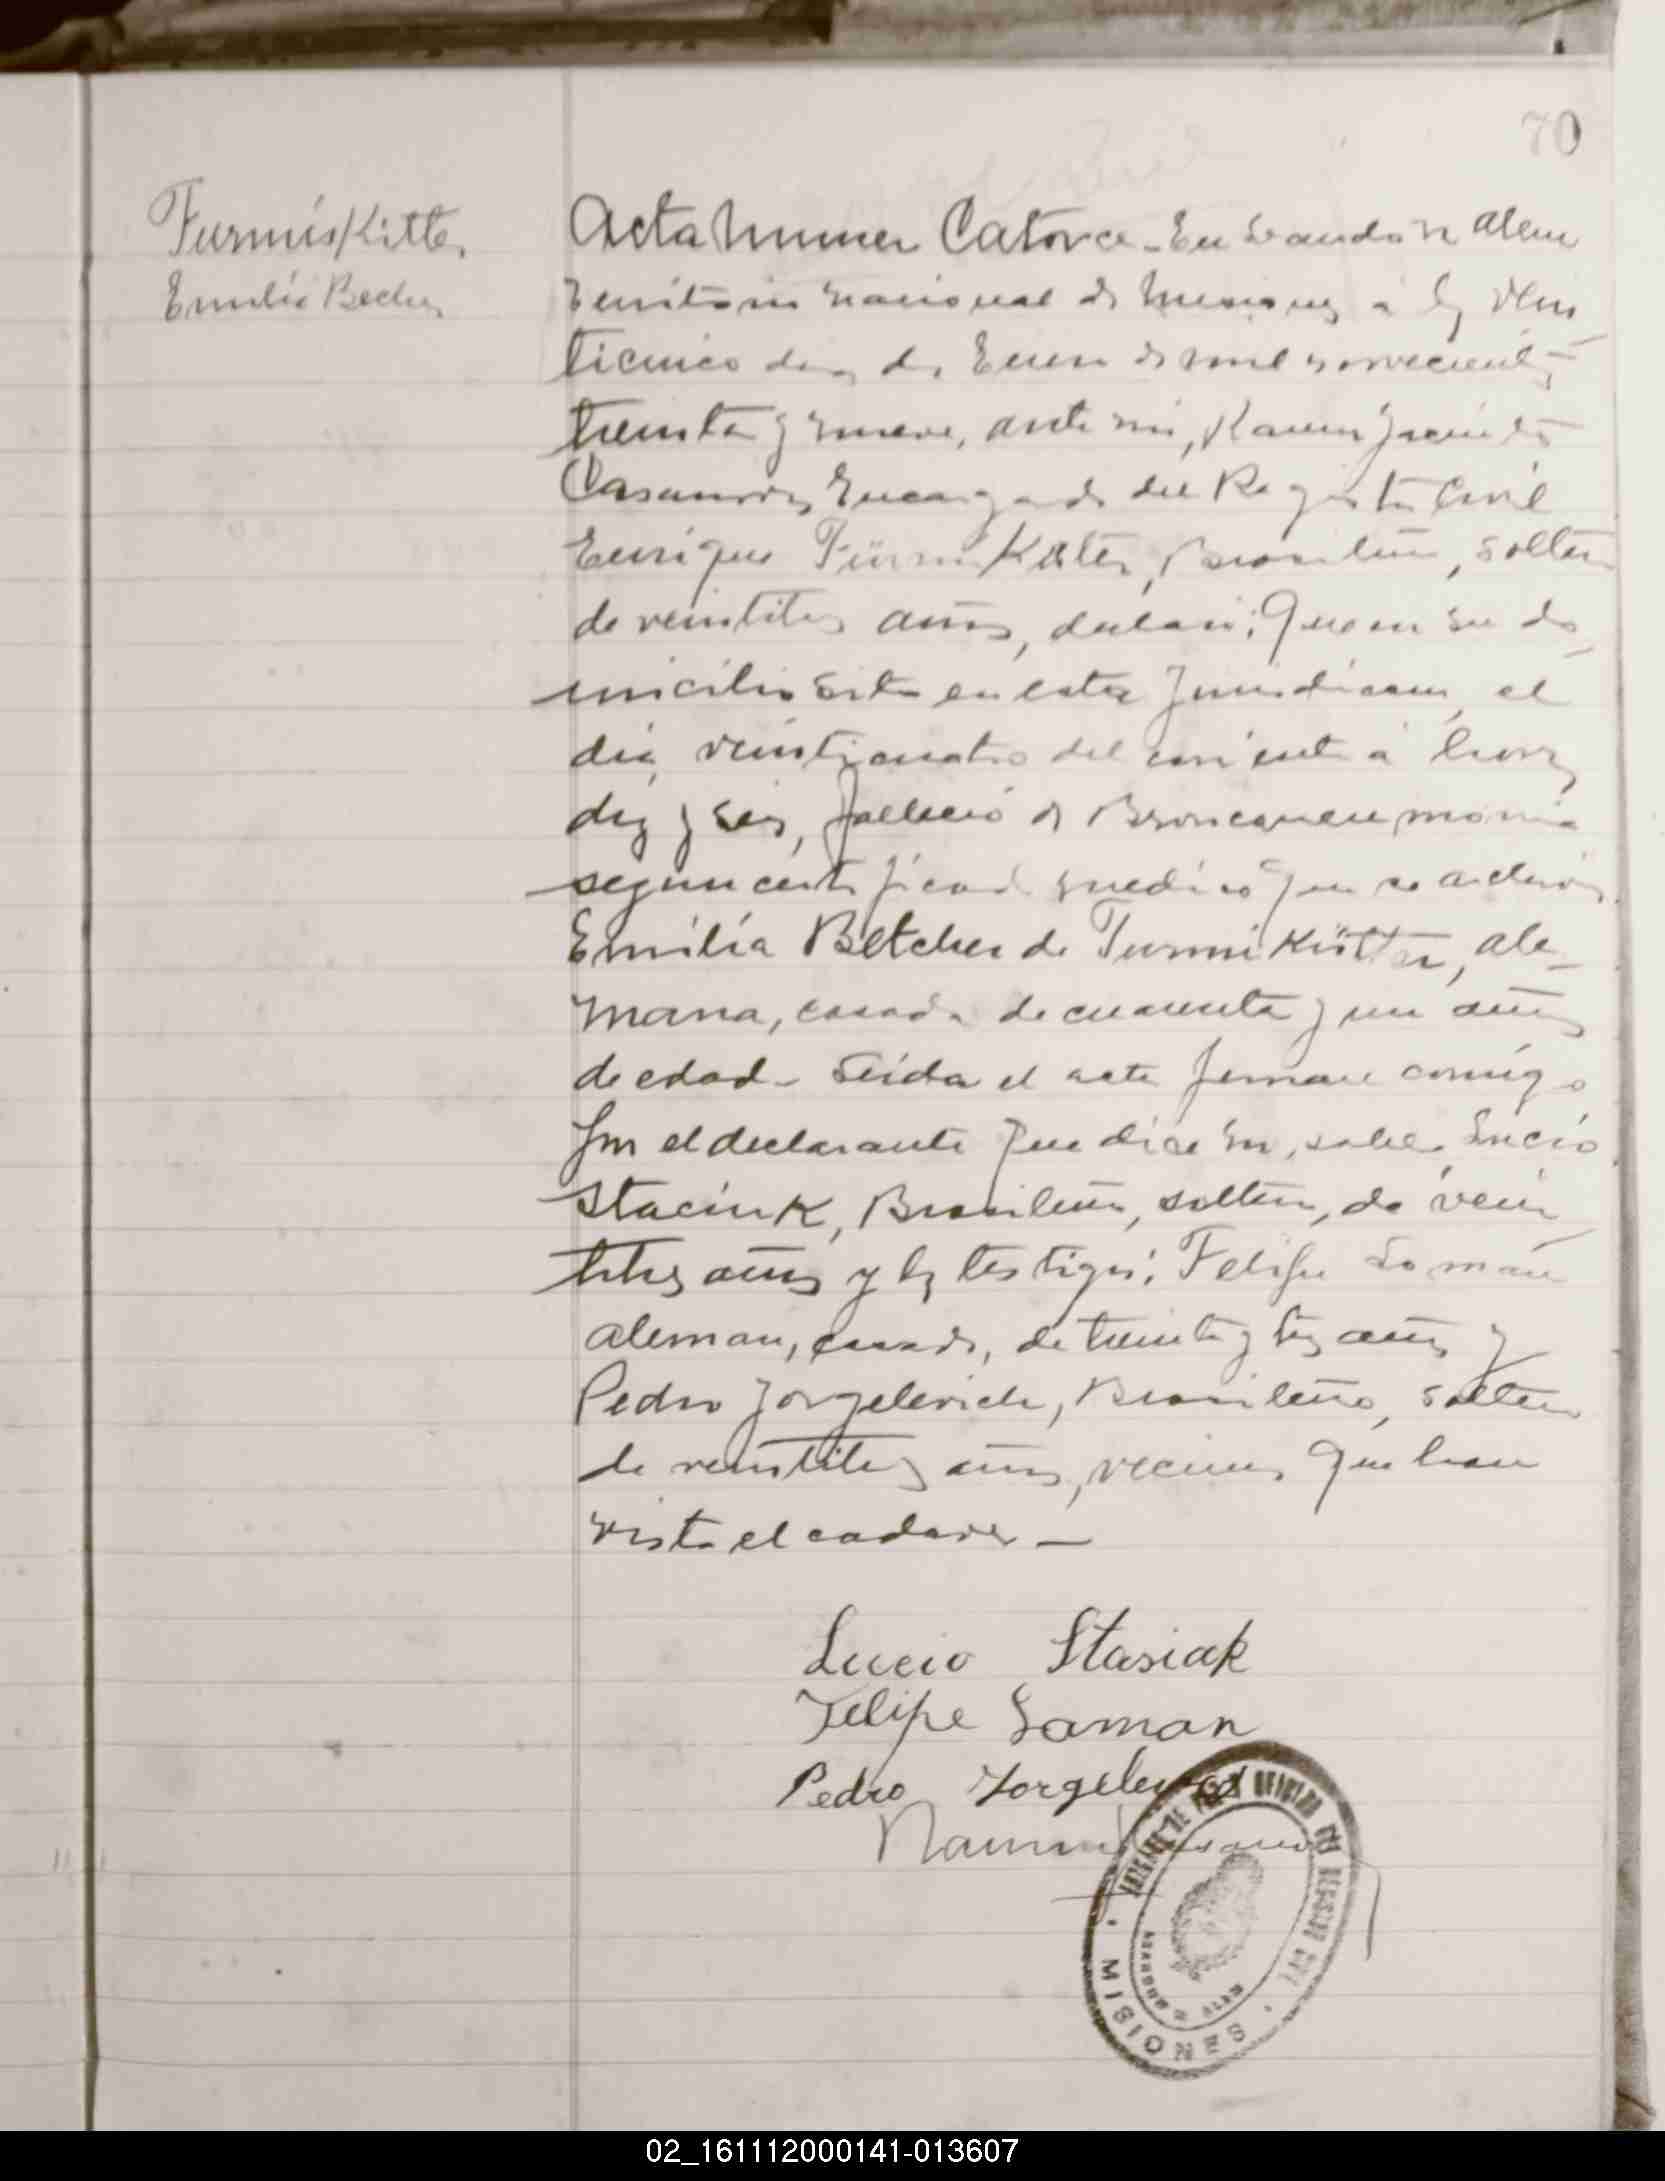 70
Furmis/Kitte.
Emilia Becher
Acta Numero Catorce - En Leandro N Alem
Territorio Nacional de Misiones a los vein
ticinco dias de Enero de mil novecientos
treinta y nueve, ante mi, Ramon Jacinto
Casanova, Encargado del Registro Civil
Enrique Brasileño, soltero
de veintitres años, declaró: Que en su do
micilio sito en esta Jurisdiccion, el
dia veinticuatro del corriente a horas
diez y seis, falleció de Bronconeumonia
segun certificado medico que se archiva
Emilia Betcher de Turmikötter, ale-
mana, casada de cuarenta y un años
de edad - Leida el acta firman conmigo
por el declarante que dice no saber Lucio
Stacink, Brasileño, soltero, de vein
titres años y los testigos: Felipe Loman
aleman, casado, de treinta y tres años y
Pedro Jorgelevich, Brasileño, soltero
de veintitres años, vecinos que han
visto el cadaver —
Lucio Stasiak
Felipe Laman
Pedro
Ramon
REGISTRO CIVIL
MISIONES
02_161112000141-013607